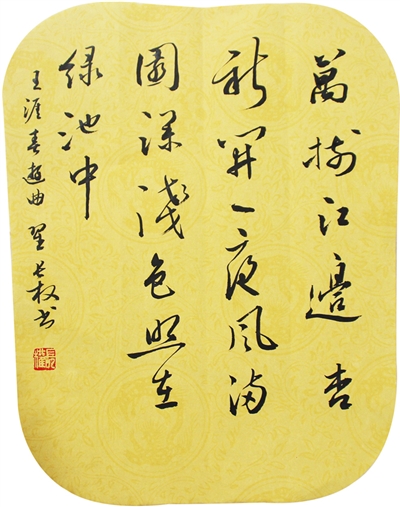 萬樹江邊杏
新開一夜風滿
園深淺色照在
綠池中
王涯春遊曲 翟长权书